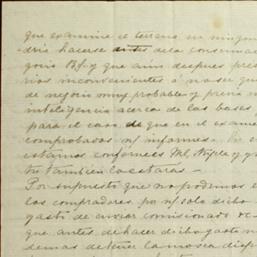 que examine el terreno en ningun
dria hacerse antes de la consuma
gorio B.f. y que aun despues pres
rios inconvenientes á no ser que
de negocio muy probable y previa
inteligencia acerca de las bases
para el caso de que en el exame
comprobados n/ informes.
estamos conformes Ml, y q
tu tambien lo estaras —
Por supuesto que no podemos e
los compradores, por n/ solo dicho
gasto de enviar comisionado
que antes de hacer dicho gasto n
demas de tener la mosca disp